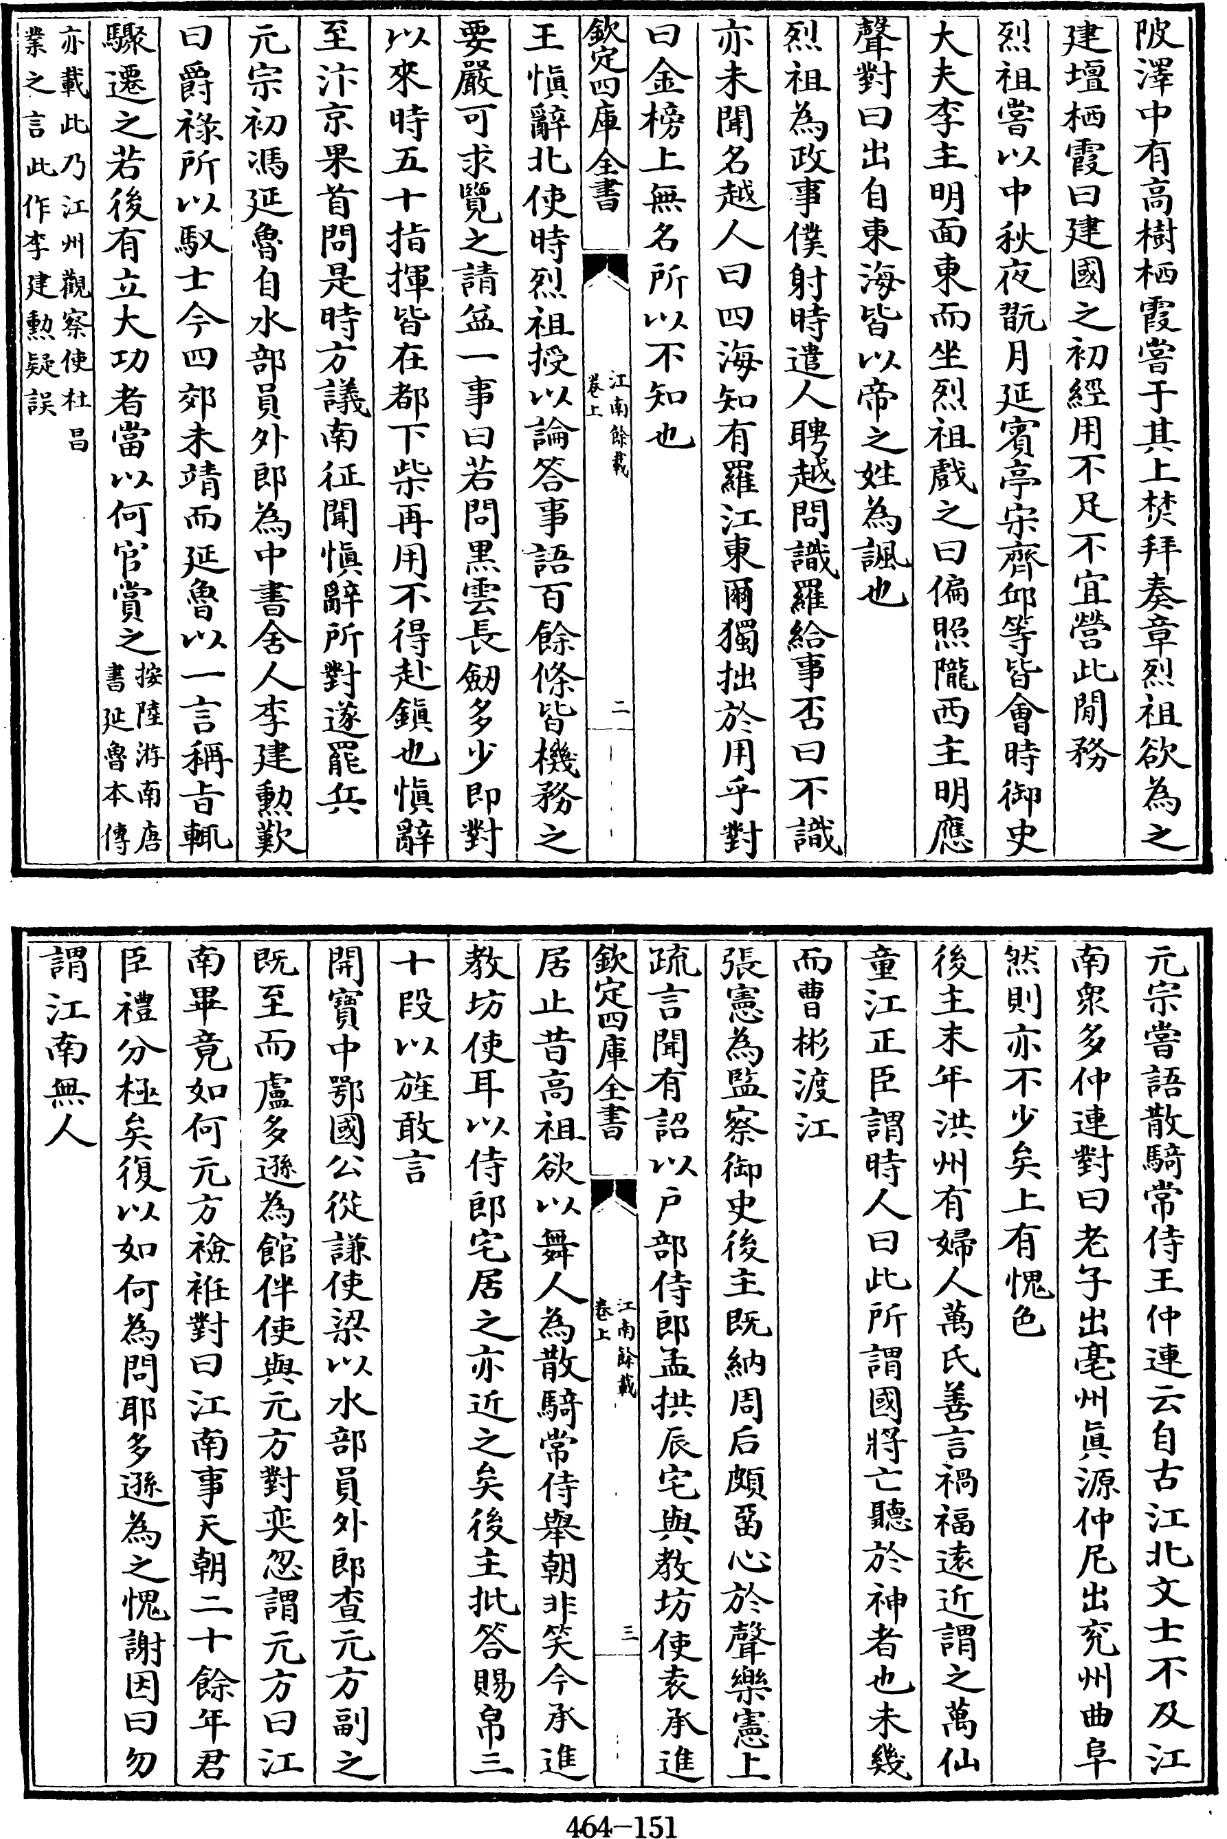 陂澤中有高樹栖霞嘗于其上焚拜奏章烈祖欲為之
建壇栖霞曰建國之初經用不足不宜營此閒務
烈祖嘗以中秋夜翫月延賓亭宋齊邱等皆會時御史
大夫李主明面東而坐烈祖戲之曰偏照隴西主明應
聲對曰出自東海皆以帝之姓為諷也
烈祖為政事僕射時遣人聘越問識羅給事否曰不識
亦未聞名越人曰四海知有羅江東爾獨拙於用乎對
曰金榜上無名所以不知也
欽定四庫全書
江南餘載
卷上
二
王愼辭北使時烈祖授以論答事語百餘條皆機務之
要嚴可求覽之請益一事曰若問黑雲長劒多少即對
以來時五十指揮皆在都下柴再用不得赴鎭也愼辭
至汴京果首問是時方議南征聞愼辭所對遂罷兵
元宗初馮延魯自水部員外郎為中書舍人李建勲歎
曰爵祿所以馭士今四郊未靖而延魯以一言稱旨輒
驟遷之若後有立大功者當以何官賞之
按陸游南唐
書延魯本傳
亦載此乃江州觀察使杜昌
業之言此作李建勲疑誤
元宗嘗語散騎常侍王仲連云自古江北文士不及江
南衆多仲連對曰老子出亳州眞源仲尼出兖州曲阜
然則亦不少矣上有愧色
後主末年洪州有婦人萬氏善言禍福遠近謂之萬仙
童江正臣謂時人曰此所謂國將亡聽於神者也未幾
而曹彬渡江
張憲為監察御史後主既納周后頗畱心於聲樂憲上
疏言聞有詔以戶部侍郎孟拱辰宅與教坊使袁承進
欽定四庫全書
江南餘載
卷上
三
居止昔高祖欲以舞人為散騎常侍舉朝非笑今承進
教坊使耳以侍郎宅居之亦近之矣後主批答賜帛三
十段以旌敢言
開寳中鄂國公從謙使梁以水部員外郎查元方副之
既至而盧多遜為館伴使與元方對奕忽謂元方曰江
南畢竟如何元方襝袵對曰江南事天朝二十餘年君
臣禮分極矣復以如何為問耶多遜為之愧謝因曰勿
謂江南無人
464-151